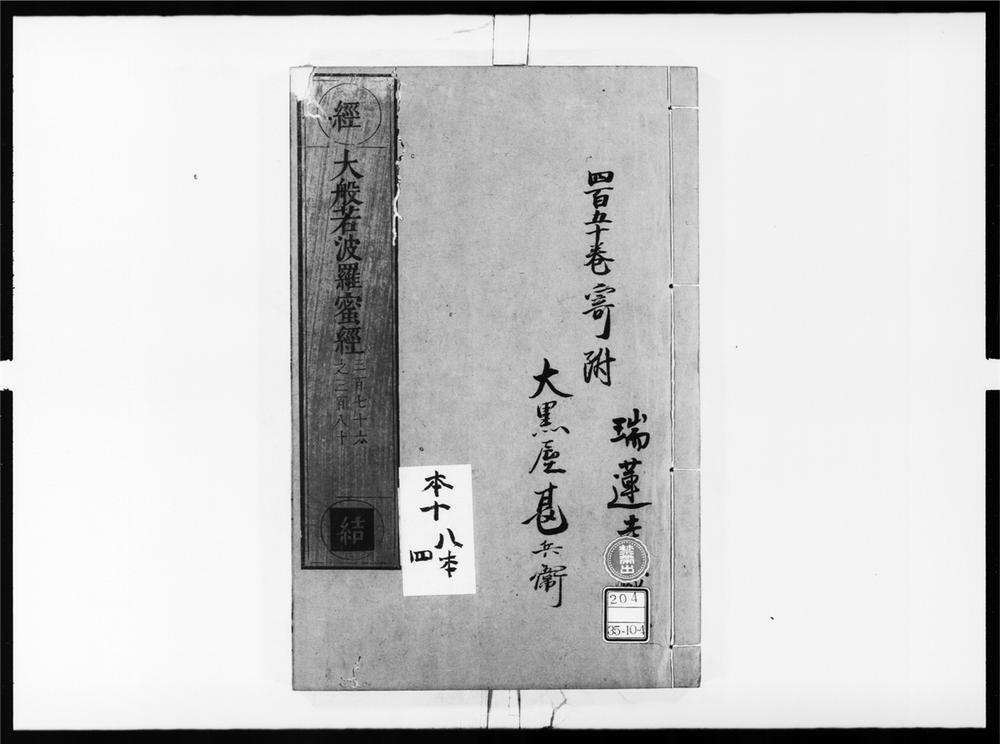 瑞蓮
四百五十卷寄附
大黒屋甚兵衛
經
大般若波羅蜜經
三百七十六
之三百八十
結
本十八本
四
禁帯出
204
35-10-4